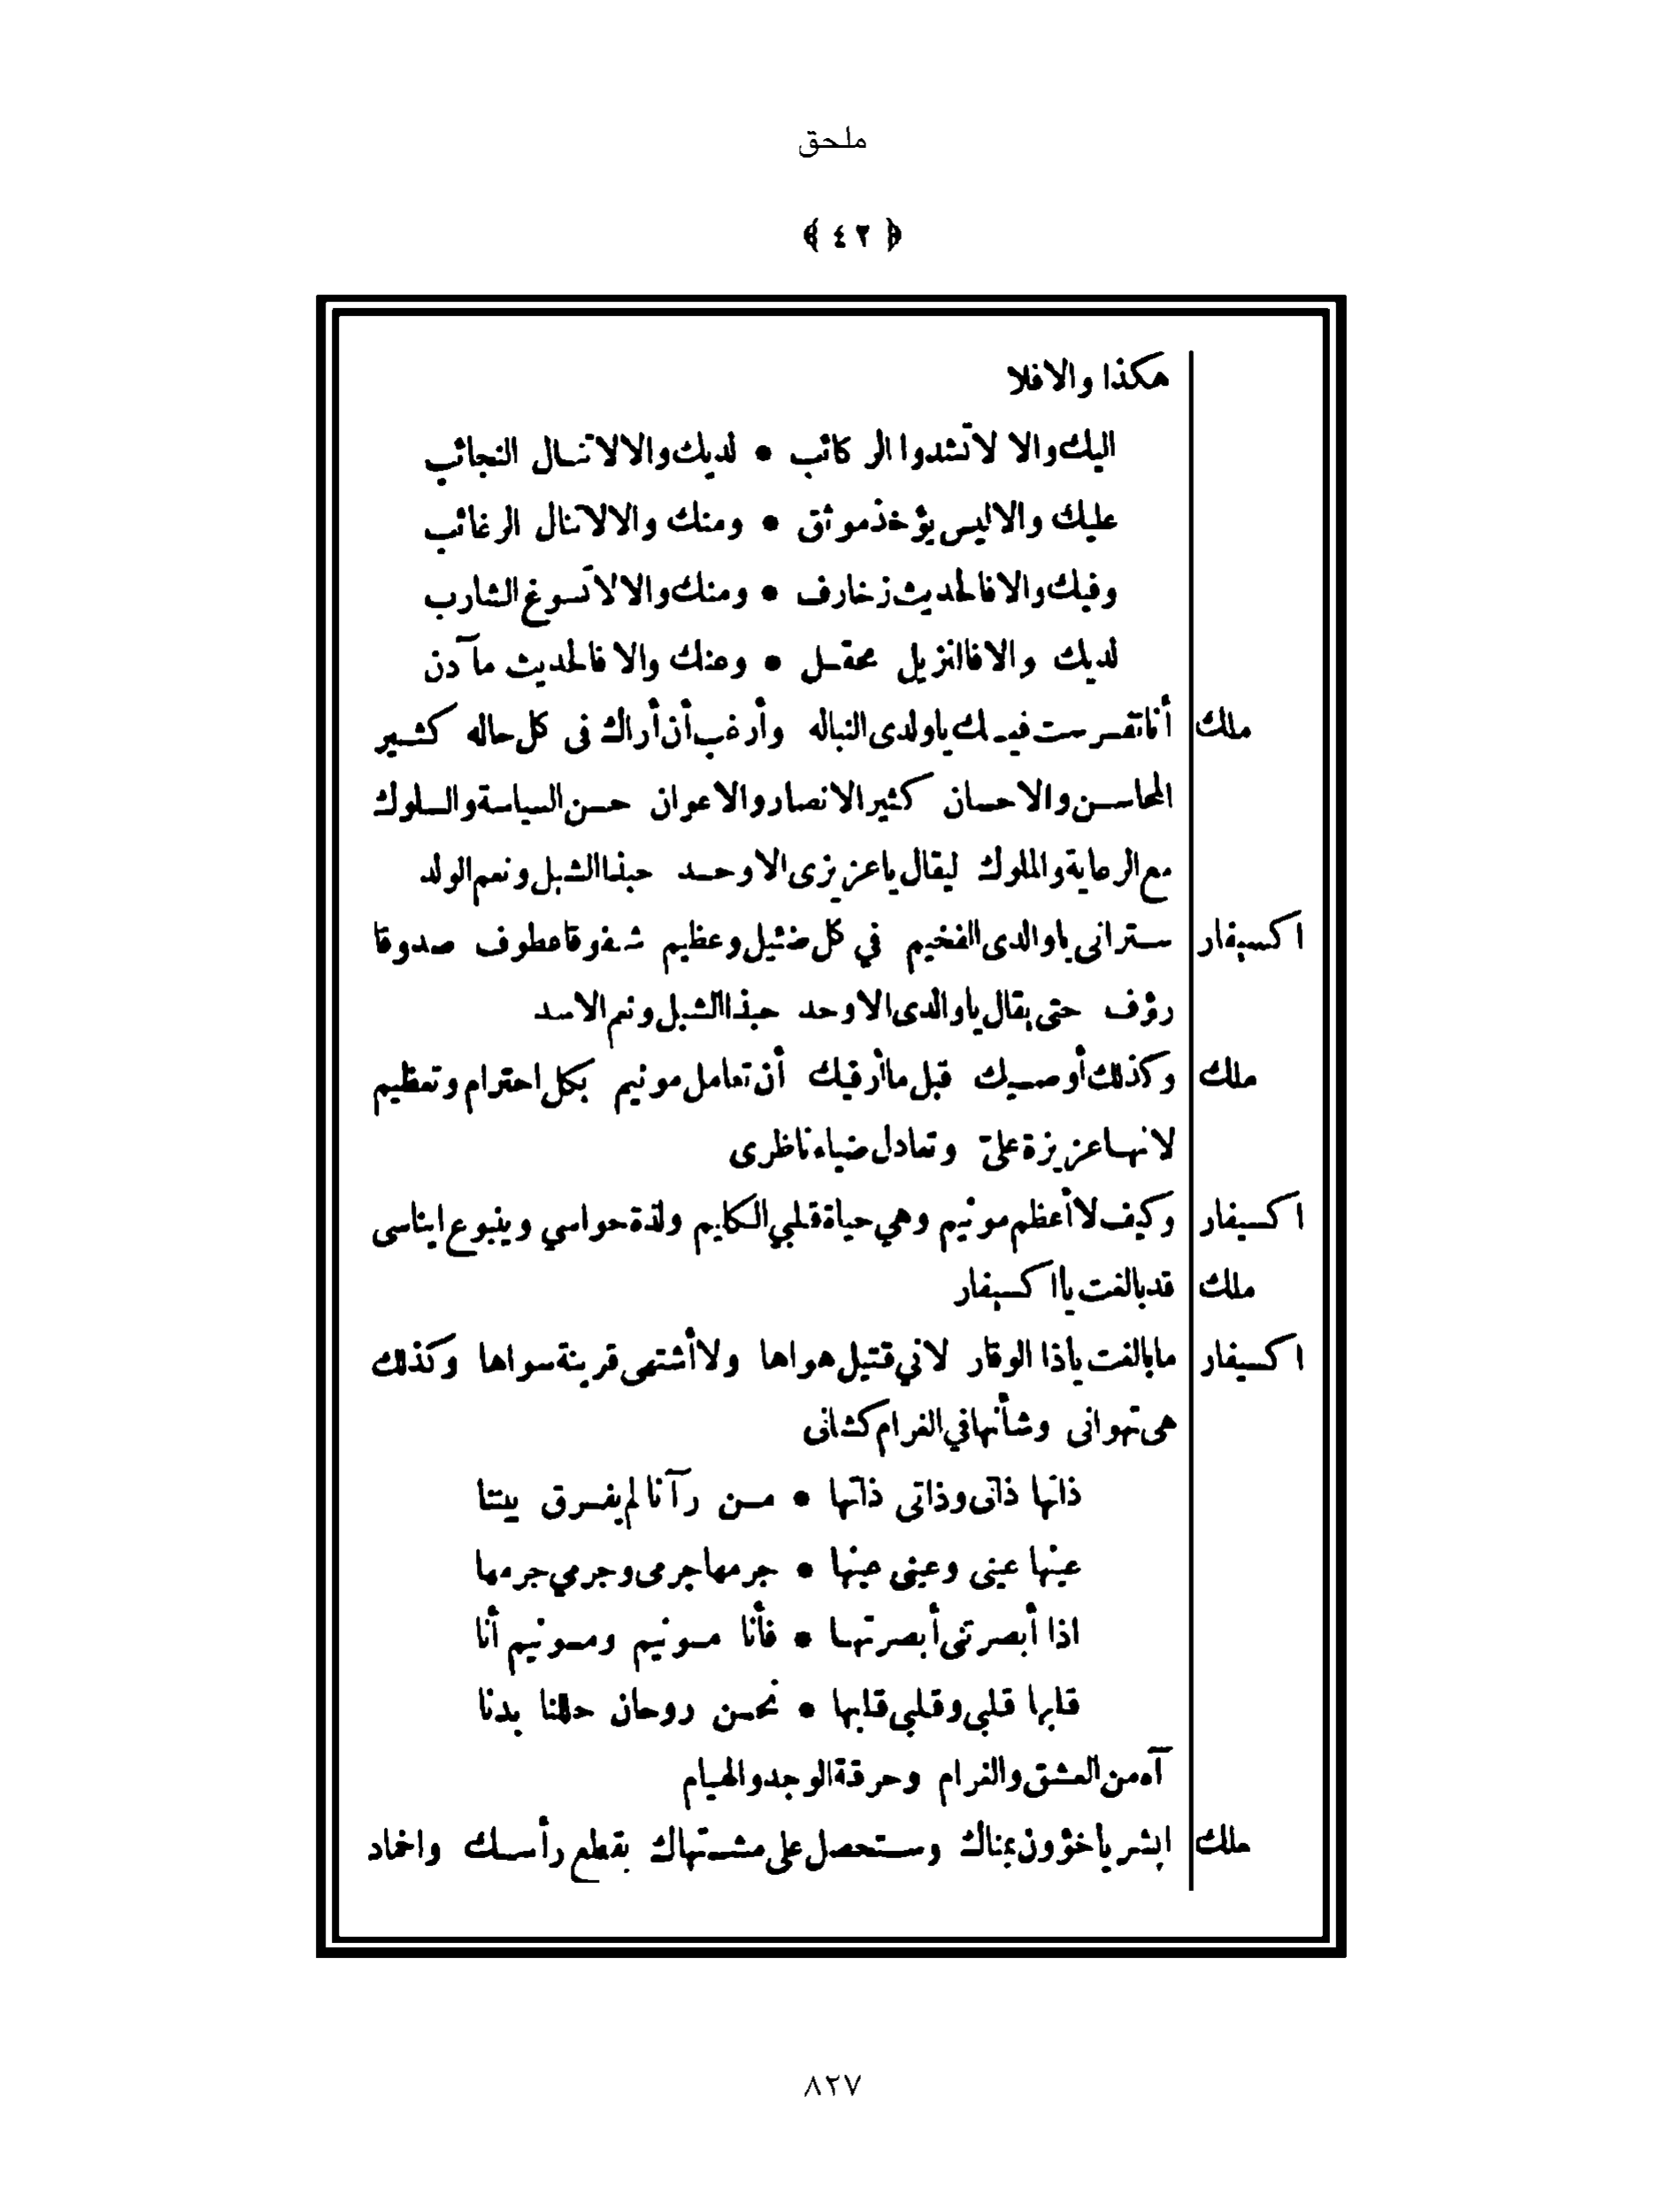 ملحق
﴿ ٤٢ ﴾
هكذا والا فلا
اليك والا لا تشدوا الركائب • لديك والا لا تنال النجائب
عليك والا ليس يؤخذ موثق • ومنك والا لا تنال الرغائب
وفيك والا فالحديث زخارف • ومنك والا لا تسوغ الشارب
لديك والا فالنزيل محقل • وعنك والا فالحديث مآدن
ملك أنا تفرست فيك ياولدى النباله وأرغب أن أراك فى كل حاله كثير
المحاسن والاحسان كثير الانصار والاعوان حسن السياسة والسلوك
مع الرعاية والملوك ليقال ياعزيزى الاوحد حبذا الشبل ونعم الولد
اكسيفار سترانى ياوالدى الفخيم في كل ضئيل وعظيم شفوقا عطوف صدوقا
رؤف حتى يقال ياوالدى الاوحد حبذا الشبل ونعم الاسد
ملك وكذلك أوصيك قبل ما أرقيك أن تعامل مونيم بكل احترام وتعظيم
لانها عزيزة علىّ وتعادل ضياء ناظرى
اكسيفار وكيف لا أعظم مونيم وهي حياة قلبي الكليم ولذة حواسي وينبوع ايناسى
ملك قد بالغت يا اكسيفار
اكسيفار ما بالغت ياذا الوقار لاني قتيل هواها ولا أشتهى قرينة سواها وكذلك
هى تهوانى وشأنها في الغرام كشانى
ذاتها ذاتى وذاتى ذاتها • من رآنا لم يفرق بيننا
عينها عينى وعينى عينها • جرمها جرمى وجرمي جرمها
اذا أبصرتنى أبصرتها • فأنا مونيم ومونيم أنا
قلبها قلبي وقلبي قلبها • نحن روحان حللنا بدنا
آه من العشق والغرام وحرقة الوجد والهيام
ملك ابشر ياخؤون بمناك وستحصل على مشتهاك بقطع رأسك واخماد
٨٢٧